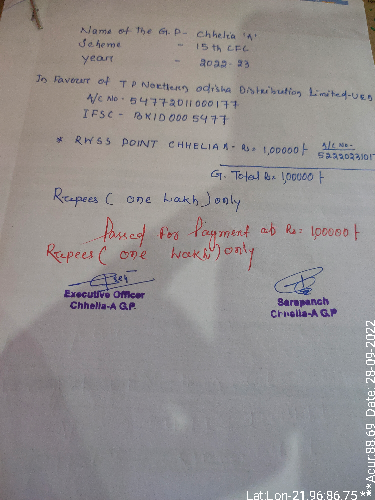 Name of the G.P - Chhelia 'A'
Scheme - 15th CFC
year - 2022-23
In Favour of T P Northern odisha Distribution Limited-
A/C No - 54772011000177
IFSC - BKID0005477
* RWSS POINT CHHELIA A - Rs = 1,00000/- A/C No-
G. Total Rs = 1,00000/-
Rupees (one Lakh) only
Passed For Payment of Rs = 1,00000/-
Rupees (one Lakh) only
Executive Officer
Chhelia-A G.P.
Sarapanch
Chhelia-A G.P
Lat:Lon-21.96:86.75 ***Acur:88.69 Date: 28-09-2022